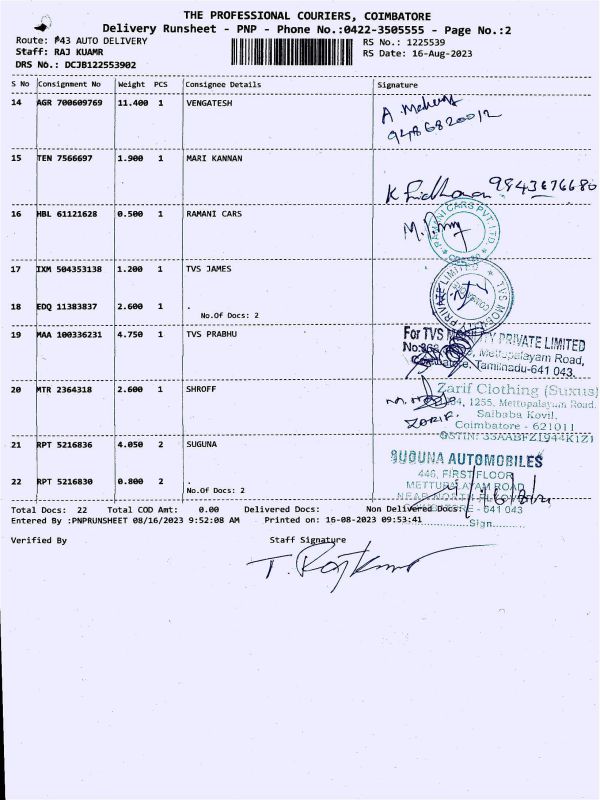 THE PROFESSIONAL COURIERS, COIMBATORE
Delivery Runsheet - PNP - Phone No.:0422-3505555 - Page No.:2
Route: P43 AUTO DELIVERY
RS No.: 1225539
Staff: RAJ KUAMR
RS Date: 16-Aug-2023
DRS No.: DCJB122553902
S No Consignment No Weight PCS Consignee Details Signature
14 AGR 700609769 11.400 1 VENGATESH
9486820012
15 TEN 7566697 1.900 1 MARI KANNAN
9843676680
16 HBL 61121628 0.500 1 RAMANI CARS
RAMANI CARS PVT. LTD.
17 IXM 504353138 1.200 1 TVS JAMES
18 EDQ 11383837 2.600 1 .
No.Of Docs: 2
19 MAA 100336231 4.750 1 TVS PRABHU
For TVS PRIVATE LIMITED
Mettupalayam Road,
Coimbatore, Tamilnadu-641 043.
20 MTR 2364318 2.600 1 SHROFF
Zarif Clothing (Suxus)
1255, Mettupalayam Road.
Saibaba Kovil,
Coimbatore - 621011
GSTIN: 33AABFZ1944K1Z1
ZARIF.
21 RPT 5216836 4.050 2 SUGUNA
SUGUNA AUTOMOBILES
446, FIRST FLOOR
METTUPALAYAM ROAD
22 RPT 5216830 0.800 2 .
No.Of Docs: 2
641 043
Total Docs: 22 Total COD Amt: 0.00 Delivered Docs: Non Delivered Docs:
Entered By :PNPRUNSHEET 08/16/2023 9:52:08 AM Printed on: 16-08-2023 09:53:41
Sign
Verified By Staff Signature
T. Rajkumar